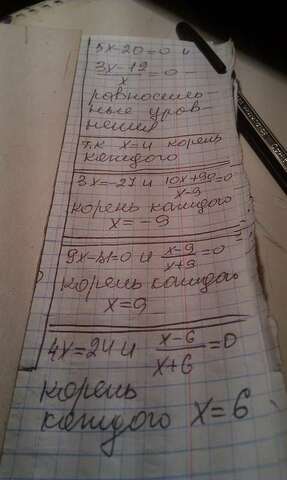 5x-20=0 и
3x-12/x=0 -
равносиль-
ные урав-
нения
т.к x=4 корень
каждого
3x=-27 и 10x+90/x-9=0
корень каждого
x=-9
9x-81=0 и x-9/x+9=0
корень каждого
x=9
4x=24 и x-6/x+6=0
корень
каждого x=6